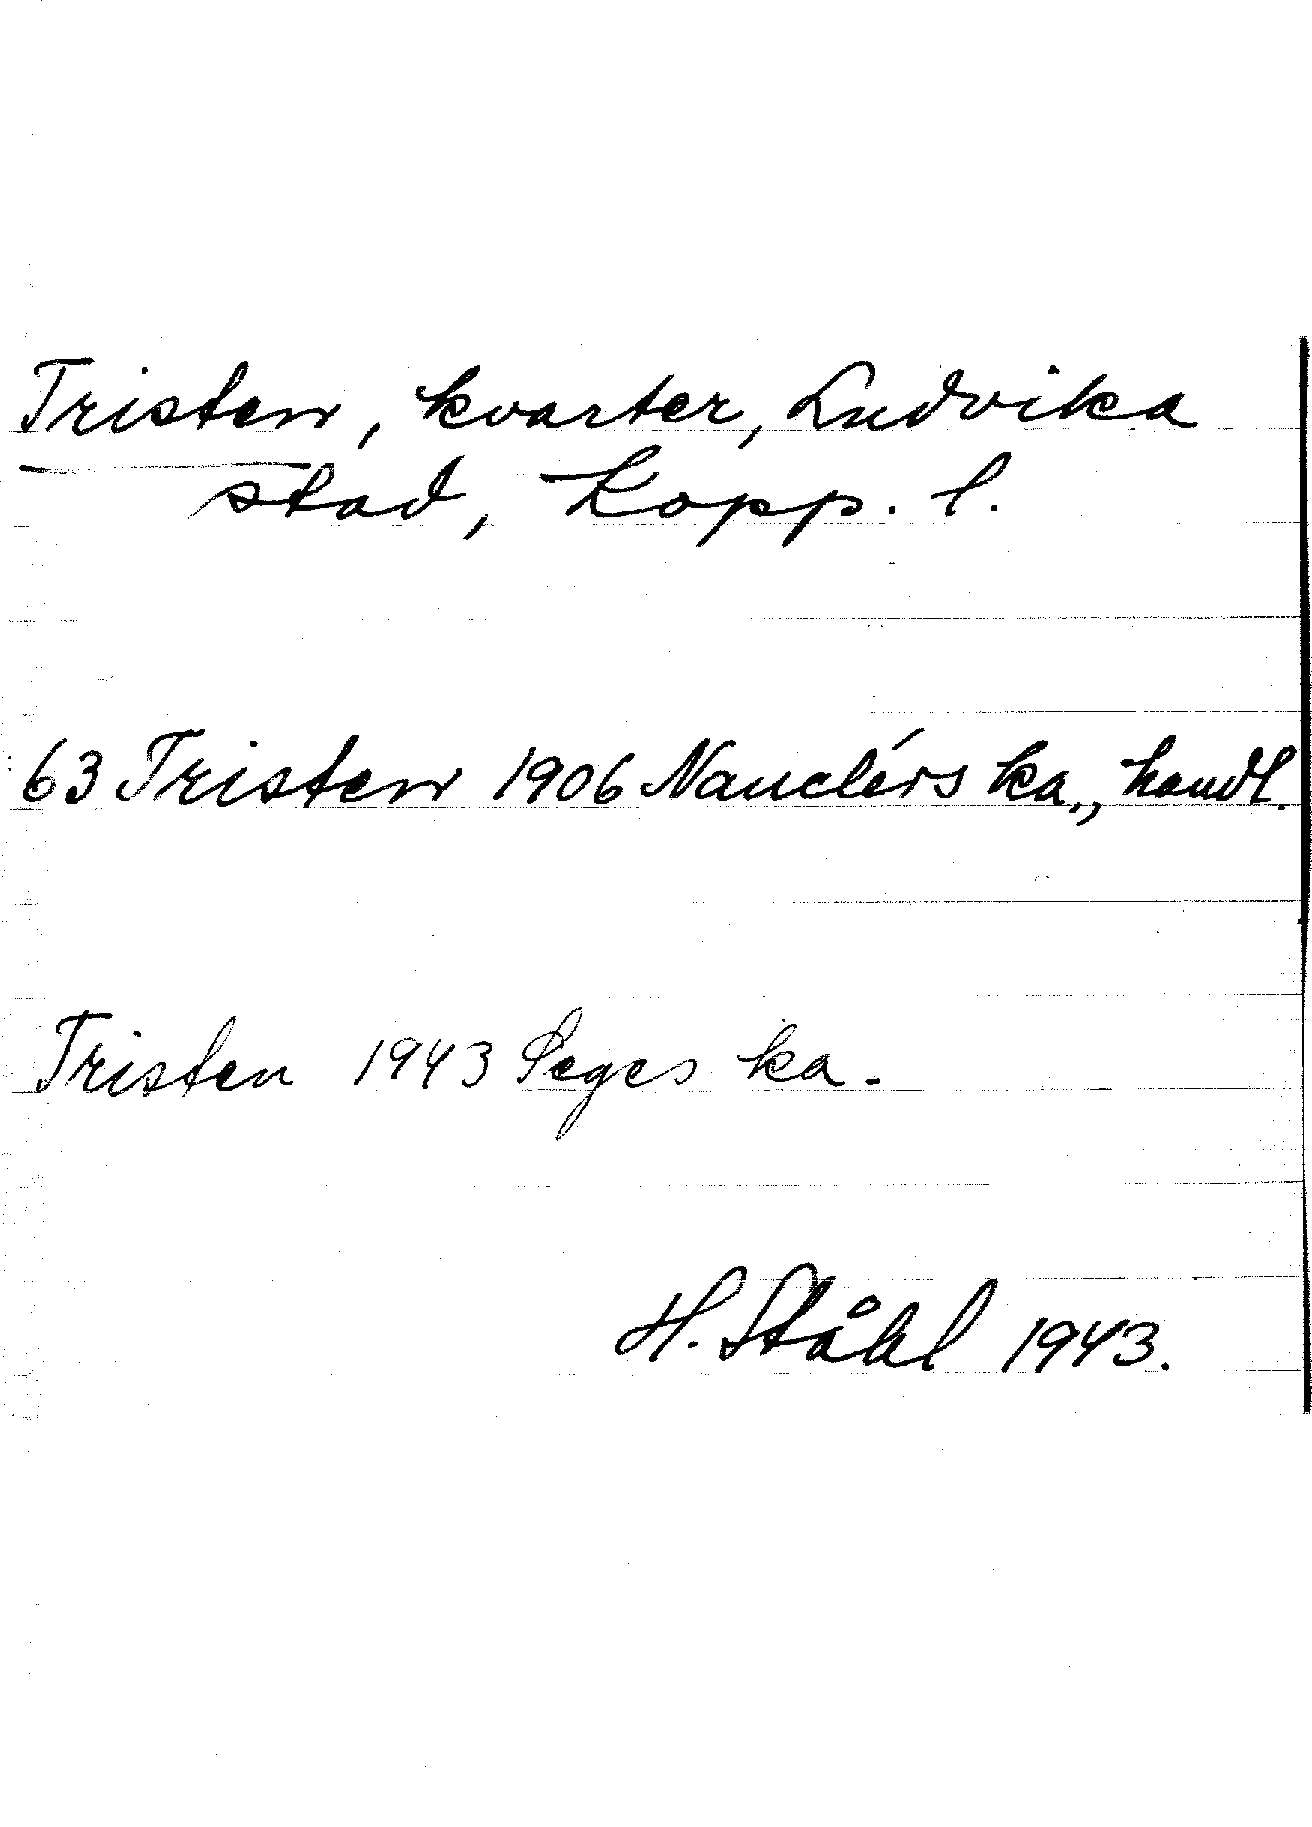 Tristen, kvarter, Ludvika
stad, Kopp. l.
63 Tristen 1906 Nauclérs ka., handl.
Tristen 1943 Seges ka.
H. Ståhl 1943.